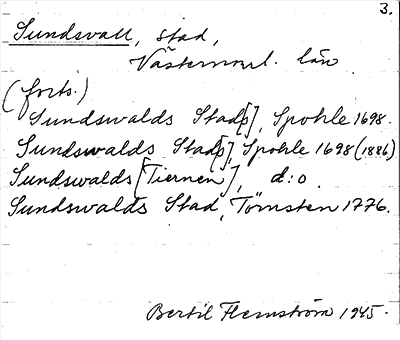 3.
Sundsvall, stad,
Västernorrl. län
(forts.)
Sundswalds Stad[s], Spohle 1698.
Sundswalds Stad[s], Spohle 1698 (1886)
Sundswalds [Tiernen], d:o
Sundswalds Stad, Törnsten 1776.
Bertil Flemström 1945.